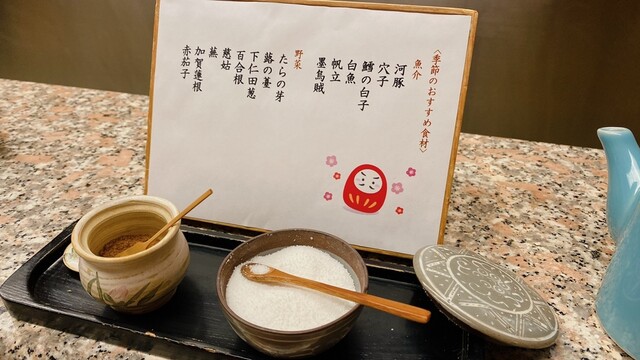 〈季節のおすすめ食材〉
魚介
河豚
穴子
鱈の白子
白魚
帆立
墨烏賊
野菜
たらの芽
蕗の薹
下仁田葱
百合根
慈姑
蕪
加賀蓮根
赤茄子